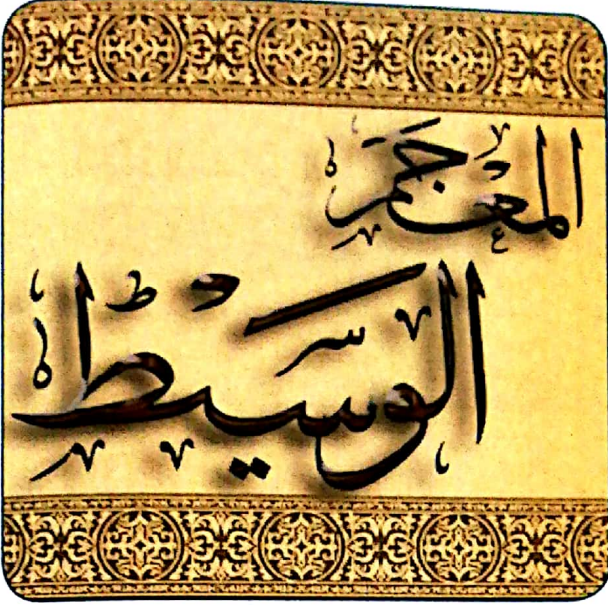 المعجم
الوسيط